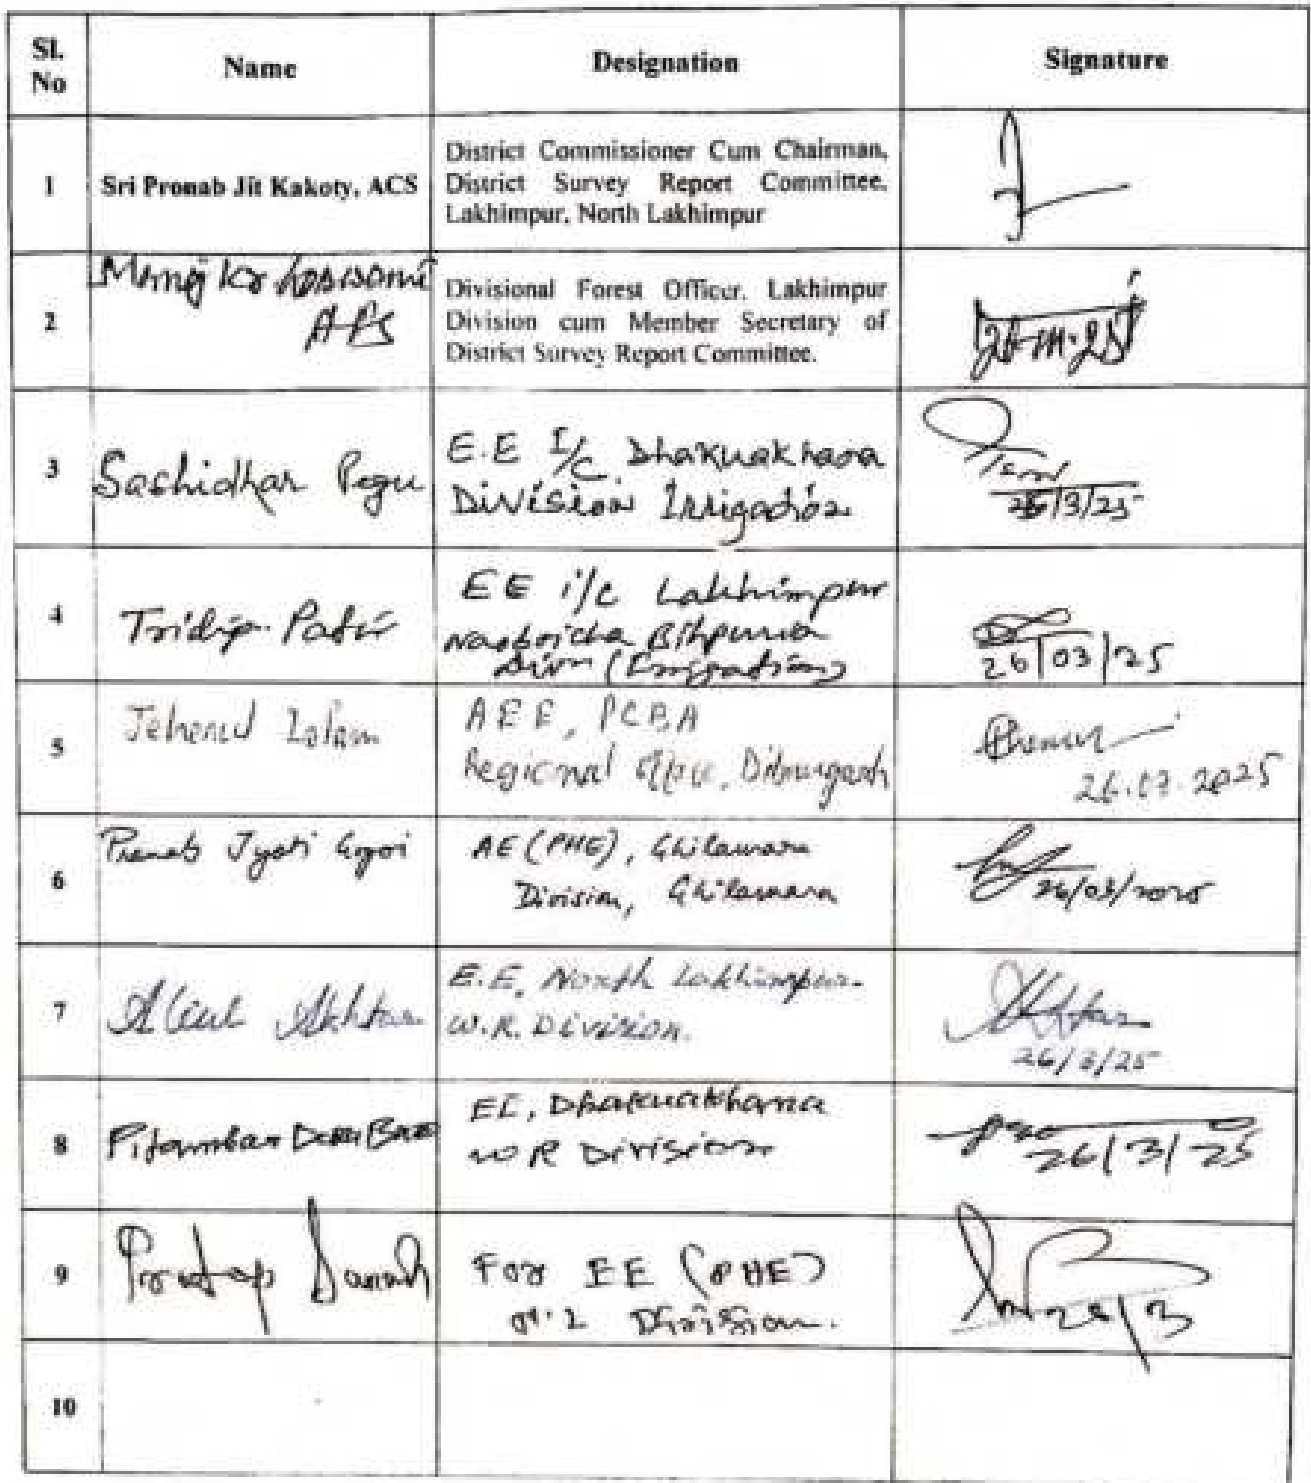 Sl. No
Name
Designation
Signature
1
Sri Pronab Jit Kakoty, ACS
District Commissioner Cum Chairman,
District Survey Report Committee,
Lakhimpur, North Lakhimpur
2
Manoj Kr Goswami
AFS
Divisional Forest Officer, Lakhimpur
Division cum Member Secretary of
District Survey Report Committee.
3
Sashidhar Pegu
E.E I/C Dhakuakhana
Division Irrigation
26/3/25
4
Tridip Patir
EE i/c Lakhimpur
Naoboicha Bihpuria
Divn (Irrigation)
26/03/25
5
Jeherul Islam
AEE, PCBA
Regional Office, Dibrugarh
26.03.2025
6
Pranab Jyoti Gogoi
AE (PHE), Ghilamara
Division, Ghilamara
26/03/2025
7
Akhtar
E.E, North Lakhimpur
W.R. Division.
26/3/25
8
Pitambar
EE, Dhakuakhana
W R Division
26/3/25
9
For EE (PHE)
Division.
26/3
10